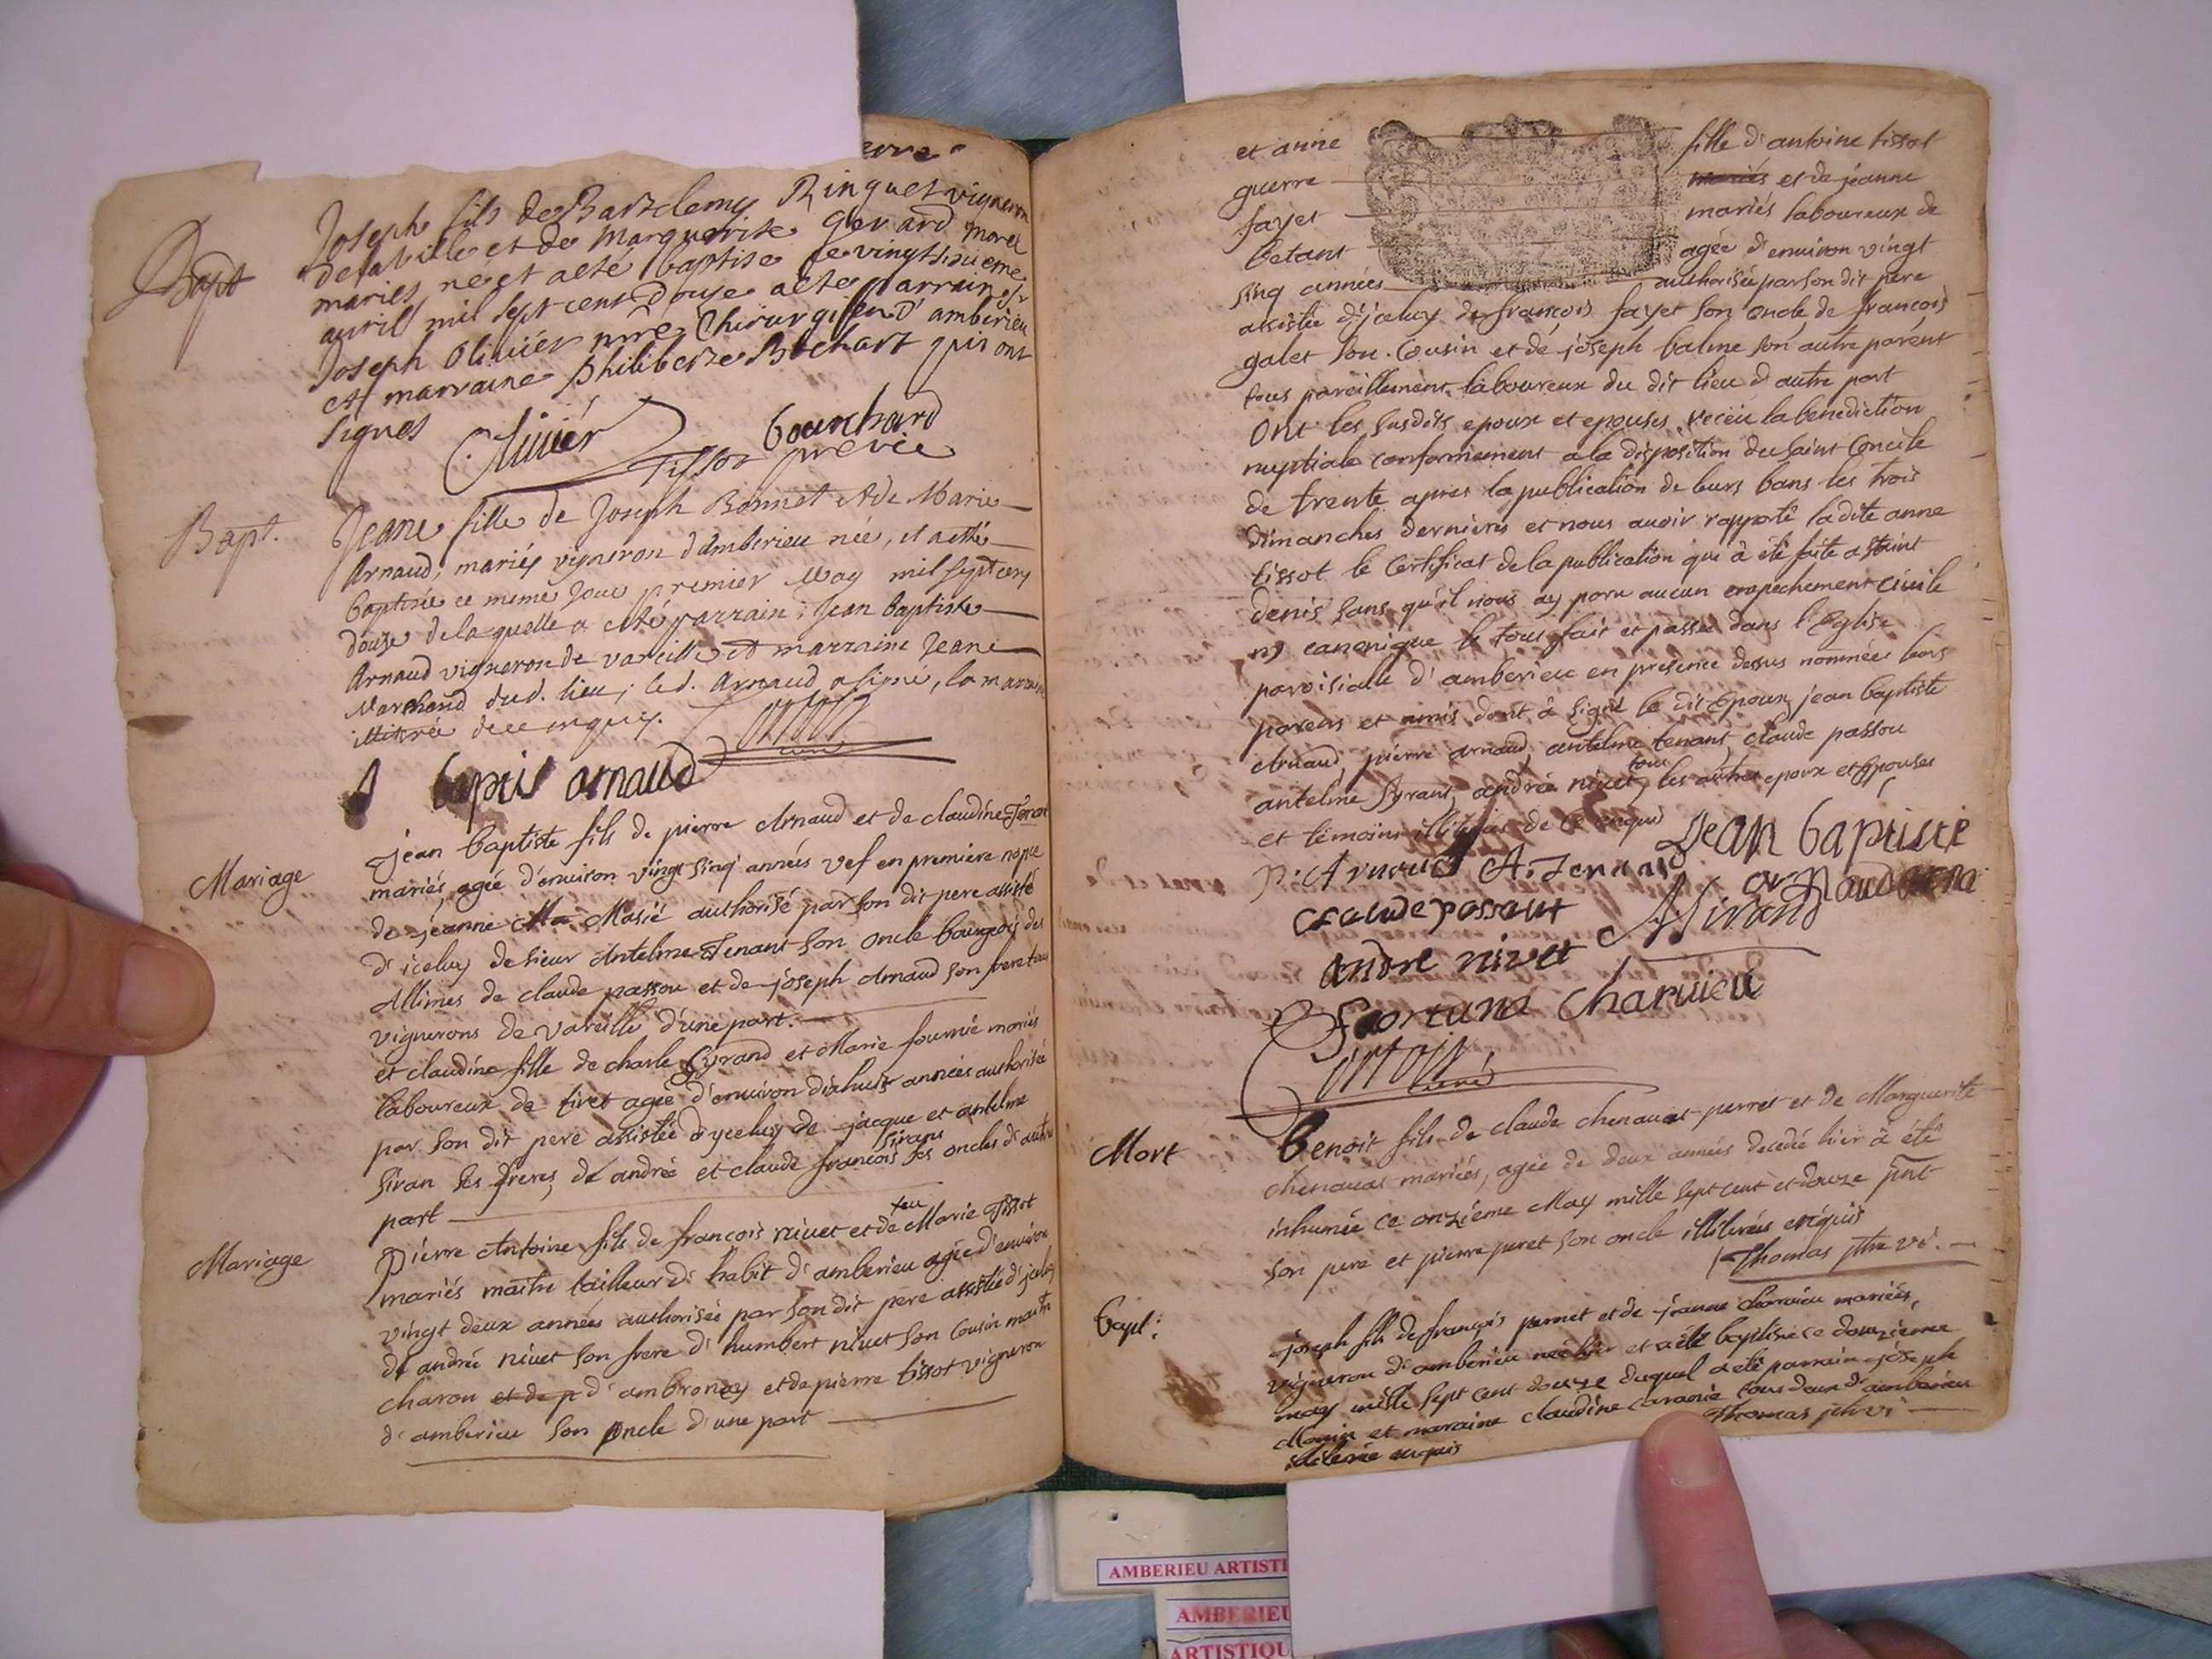 erre
Bapt
Joseph fils de Bartelemy Ringuet vigneron
de laville et de Marguerite Gerard Morel
mariés ne et aeté baptise le vingtsixieme
auril mil sept cent douze a esté parrain sr
Joseph Oliuiér mre Chirurgien d'amberieu
et marraine philiberte Bochart qui ont
signés
Oliuiér bouchard
Tissot prevre
Bapt.
Jeane fille de Joseph Bonnet et de Marie
Arnaud, mariés vigneron d'amberieu née, et a esté
baptisée ce meme jour premier May mil sept cens
douze de laquelle a esté parrain: Jean baptiste
Arnaud vigneron de vareille et marraine Jeane
Marchand dud. lieu; led. Arnaud a signé, la marraine
illitirée de ce enquis.
curé
J baptis arnaud
Mariage
jean baptiste fils de pierre Arnaud et de claudine Tenant
mariés, agée d'enuiron vingt sinq années vef en premiere nopce
de jéanne Ma Masié authorisé par son dit pere assisté
d'iceluy de sieur Antelme Tenant son oncle bourgeois des
Allimes de claude passou et de joseph Arnaud son frere tous
vignerons de vareille d'une part.
et claudine fille de charle Syrand et Marie fournié mariés
laboureux de tiret agée d'enuiron dixhuit années authorisée
par son dit pere assistée d'yceluy de jacque et antelme
siran ses freres, de andrée et claude francois sirans ses oncles d'autre
part
Mariage
Pierre Antoine fils de francois niuet et de feu Marie Tissot
mariés maitre tailleur d'habit d'amberieu agée d'enuiron
vingt deux années authorisée par son dit pere assistée d'iceluy
de andrée niuet son frere d'humbert niuet son cousin maitre
charon et de p d'ambronay et de pierre tissot vigneron
d'amberieu son oncle d'une part
et anne fille d'antoine tissot
guerre mariés et de jeanne
fayet mariés laboureux de
betant agée d'enuiron vingt
sinq années authorisée par son dit pere
assistée d'iceluy de francois fayet son oncle de francois
galet son cousin et de joseph balme son autre parent
tous pareillement laboureux du dit lieu d'autre part
Ont les susdits epoux et epouses receu la benediction
nuptiale conformement a la disposition du saint Concile
de trente apres la publication de leurs bans les trois
dimanches derniers et nous auoir rapporté la dite anne
tissot le certificat de la publication qui à été faite a staint
denis sans qu'il nous ay paru aucun empechement ciuile
ny canonique le tous fait et passée dans l'Eglise
paroisialle d'amberieu en presence dessus nommées leurs
parens et amis dont à signé le dit epoux jean baptiste
Arnaud, pierre arnaud, antelme tenant, claude passou
antelme syrans, andrée niuet, tous les autres epoux et epouses
et temoins illiterés de ce enquis
Jean baptiste
p. Arnaud A. Tenand arnaud
claude passout A Sirand
andre nivet
fortuna Charuieu
curé
Mort
benoit fils de claude chenauat perret et de Marguerite
chenauas mariés, agée de deux années decedé hier à été
inhumée ce onziéme May mille sept cent et douze pnt
son pere et pierre peret son oncle illiterés enquis
Thomas ptre vi.
bapt:
joseph fils de françois pernet et de jeanne charuieu mariés,
vigneron d'amberieu née hier et a été baptisée ce douzieme
may mille sept cent douze duquel a été parrain joseph
Monin et marraine claudine tous deux d'amberieu
illiterée enquis Thomas ptre vi
AMBERIEU ARTISTI
AMBERIEU
ARTISTIQU